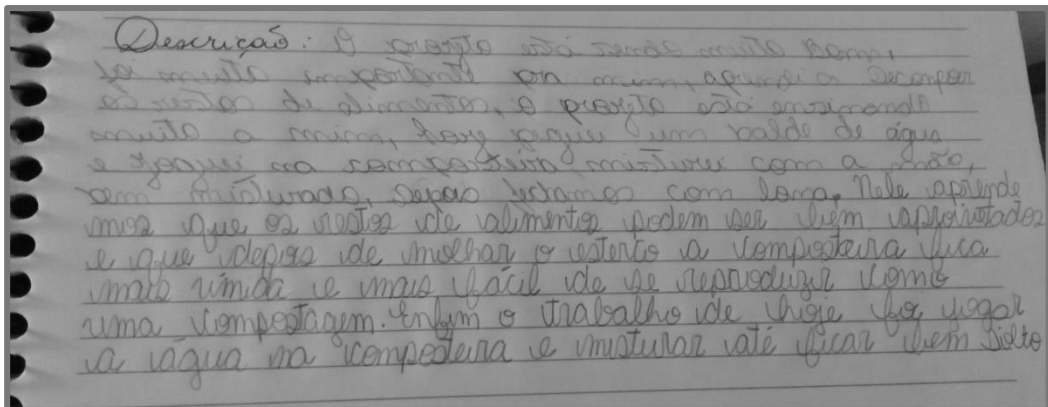 Descrição: O projeto está sendo muito bom,
foi muito importante pra mim, aprendi a decompor
os restos de alimentos, o projeto está ensinando
muito a mim, hoje peguei um balde de água
e joguei na composteira misturei com a mão,
bem misturado, depois fechamos com lona. Nele aprende
mos que os restos de alimentos podem ser bem aproveitados
e que depois de molhar o esterco a composteira fica
mais úmida e mais fácil de se reproduzir como
uma compostagem. Enfim o trabalho de hoje foi jogar
a água na composteira e misturar até ficar bem solto